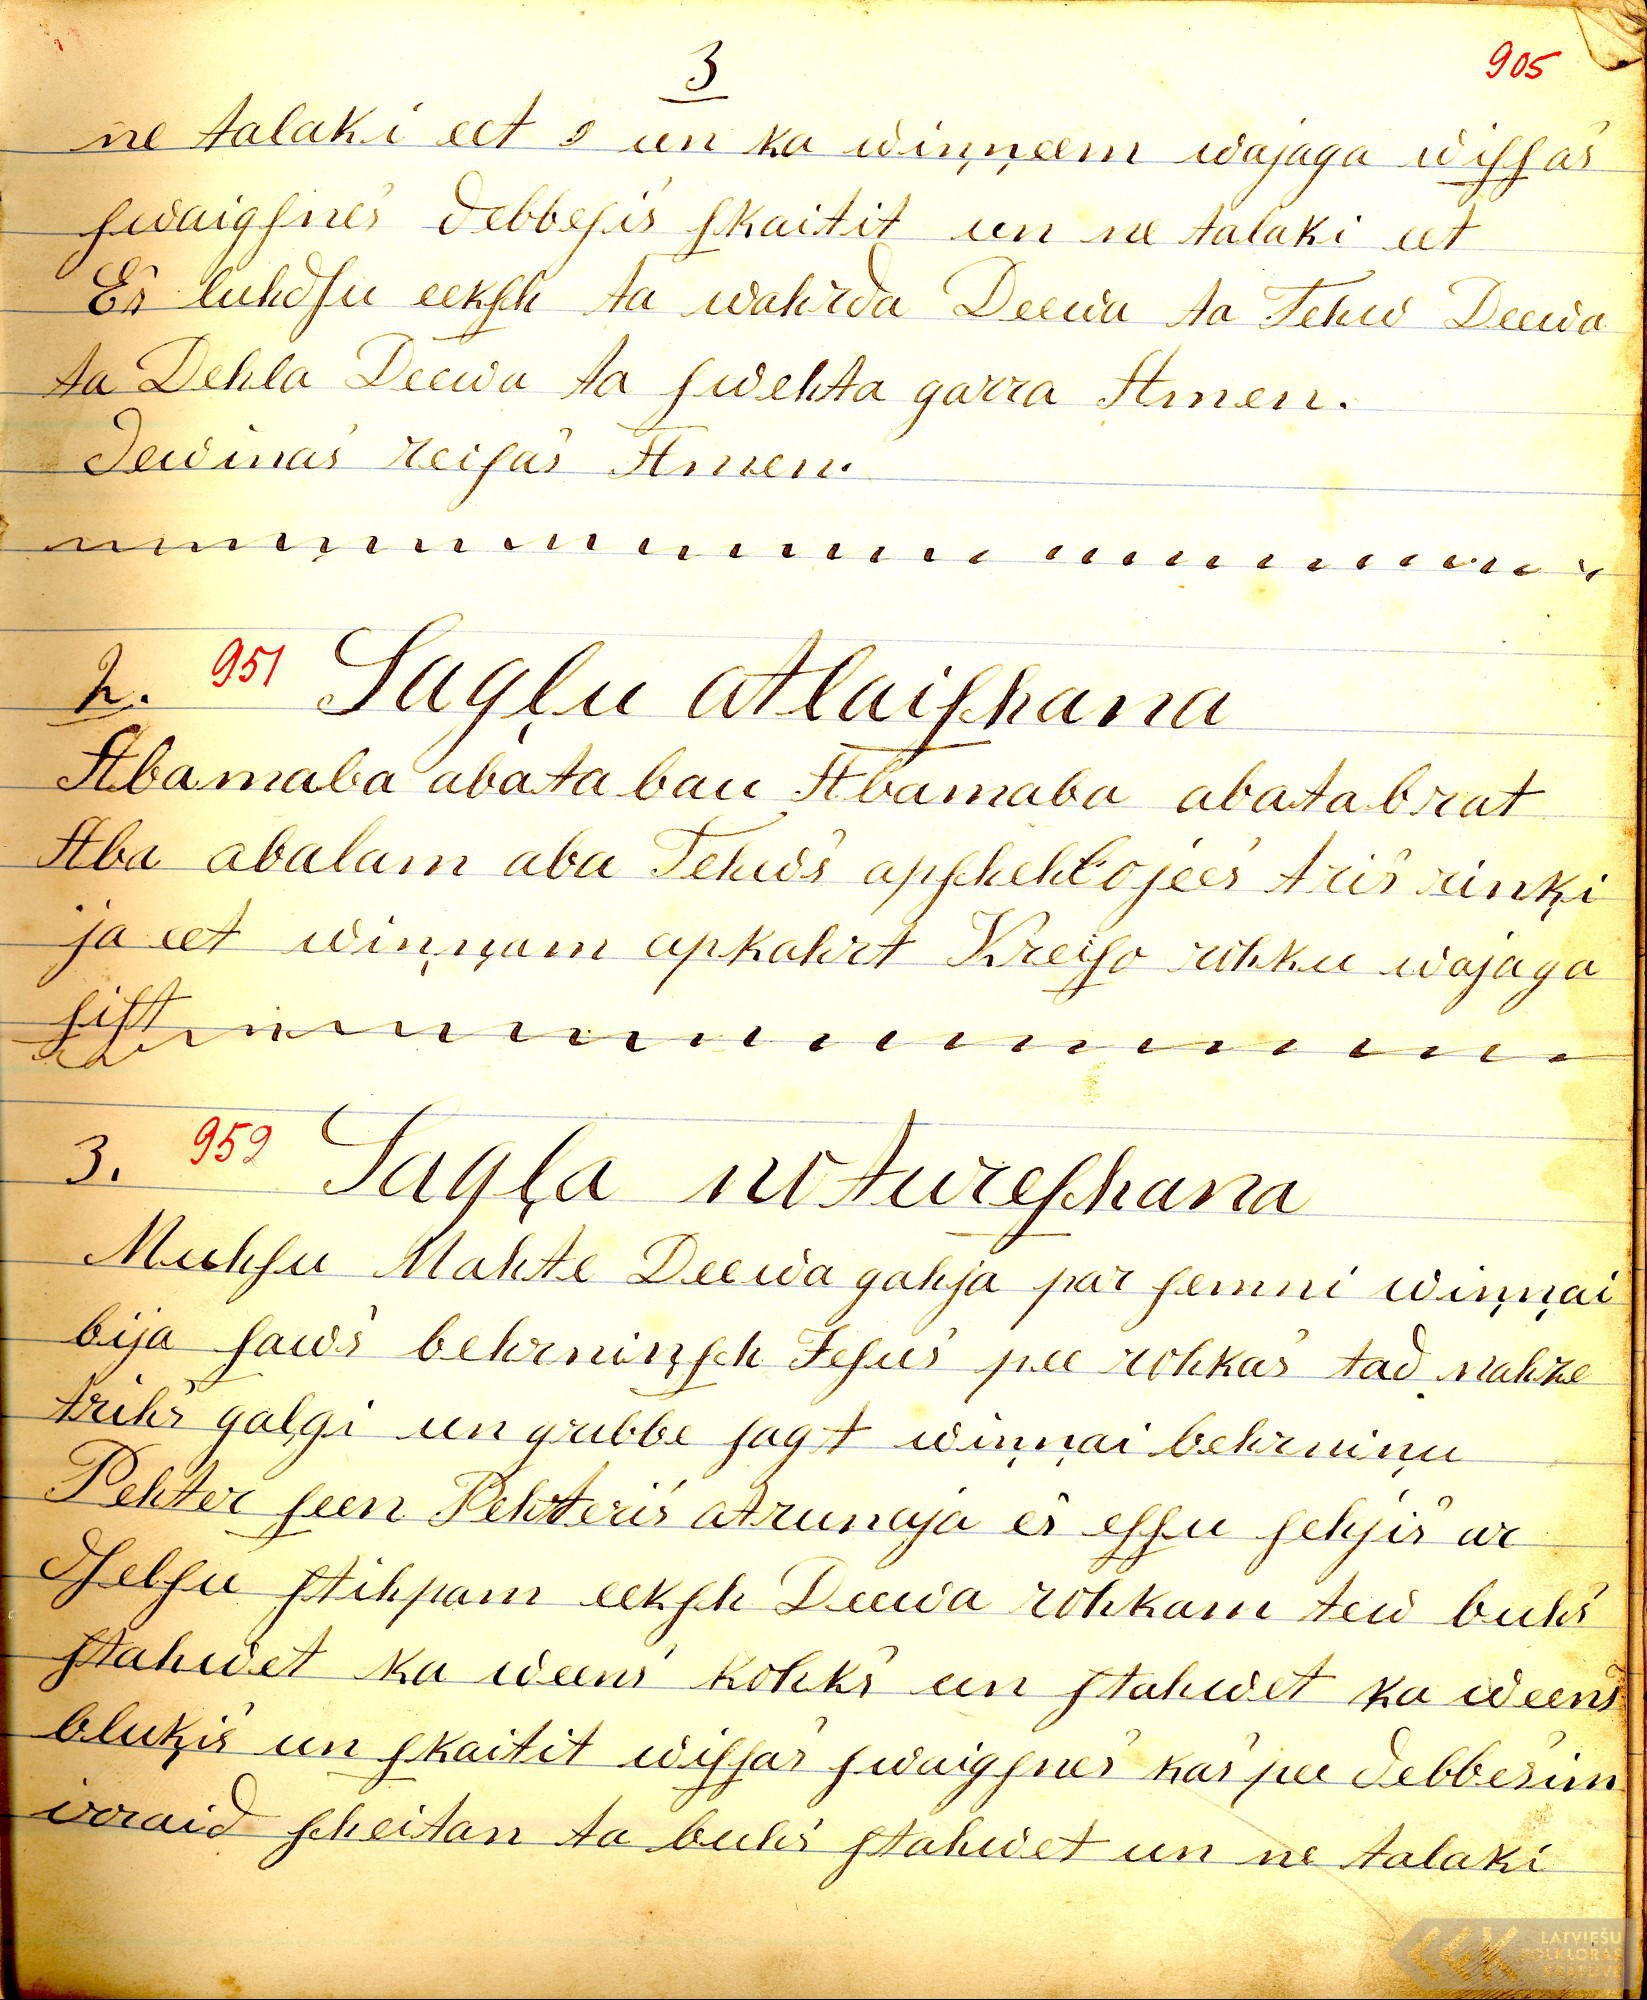 3
905
ne talaki eet un ka wiņņeem wajaga wiſſas
ſwaigſnes debbeſis ſkaitit un ne talaki eet
Es luhdſu eekſch ta wahrda Deewa ta Tehw Deewa
ta Dehla Deewa ta ſwehta garra Amen.
Dewinas reiſas Amen.
2. 951 Sagļu atlaiſchana
Abamaba abata bau Abamaba abatabrat
Aba abalam aba Tehws apſchehlojees tris rinķi
ja eet wiņņam apkahrt Kreiſo rohku wajaga
ſiſt
3. 952 Sagļa notureſchana
Muhſu Mahte Deewa gahja par ſemmi wiņņai
bija ſaws behrniņſch Jeſus pee rohkas tad nahze
trihs galgi un gribbe ſagt wiņņai behrniņu
Pehter ſeen Pehteris atrunaja es eſſu ſehjis ar
dſelſu ſtihpam eekſch Deewa rohkam tew buhs
ſtahwet ka weens kohks un ſtahwet ka weens
bluķis un ſkaitit wiſſas ſwaigſnes kas pee debbesim
irraid ſcheitan ta buhs ſtahwet un ne talaki
LATVIEŠU
FOLKLORAS
KRĀTUVE